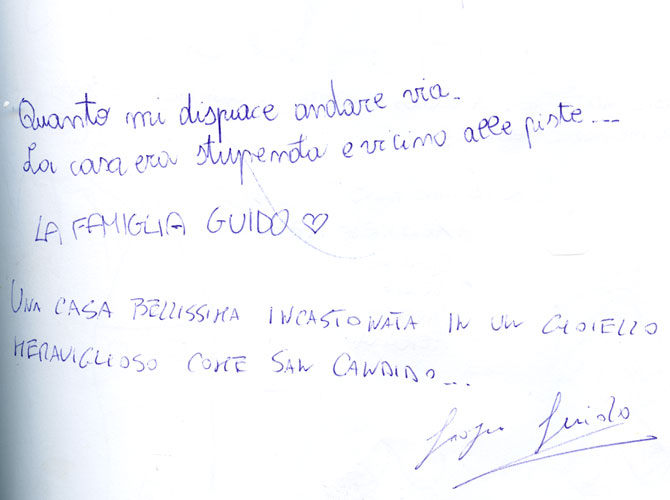 Quanto mi dispiace andare via.
La casa era stupenda e vicino alle piste...
LA FAMIGLIA GUIDO ♡
UNA CASA BELLISSIMA INCASTONATA IN UN GIOIELLO
MERAVIGLIOSO COME SAN CANDIDO...
Guido